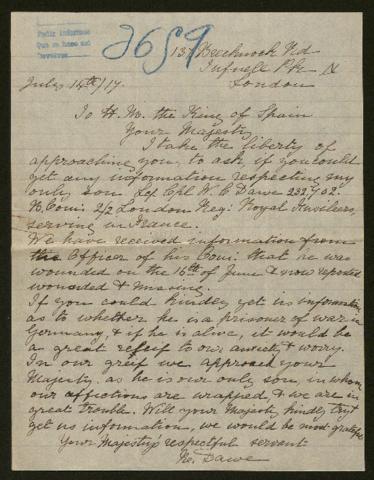 Pedir informes
Que se hace así
2659
137 Brecknock Rd
Tufnell Pk N
London
July 14th/17.
To H. M. the King of Spain
Your Majesty
I take the liberty of
approaching you to ask if you could
get any information respecting my
only son Lce Cpl W. C Dawe 232402.
2/2 London Reg: Royal Fusiliers,
serving in France.
We have received information from
the Officer of his Com: that he was
wounded on the 16th of June & now reported
wounded & missing.
If you could kindly get us information
as to whether he is a prisoner of war in
Germany, & if he is alive, it would be
a great relief to our anxiety & worry.
In our greif we approach your
Majesty as he is our only son, in whom
our affections are wrapped, & we are in
great trouble. Will your Majesty kindly try &
get us information, we would be most grateful
Your Majesty's respectful servant
Dawe